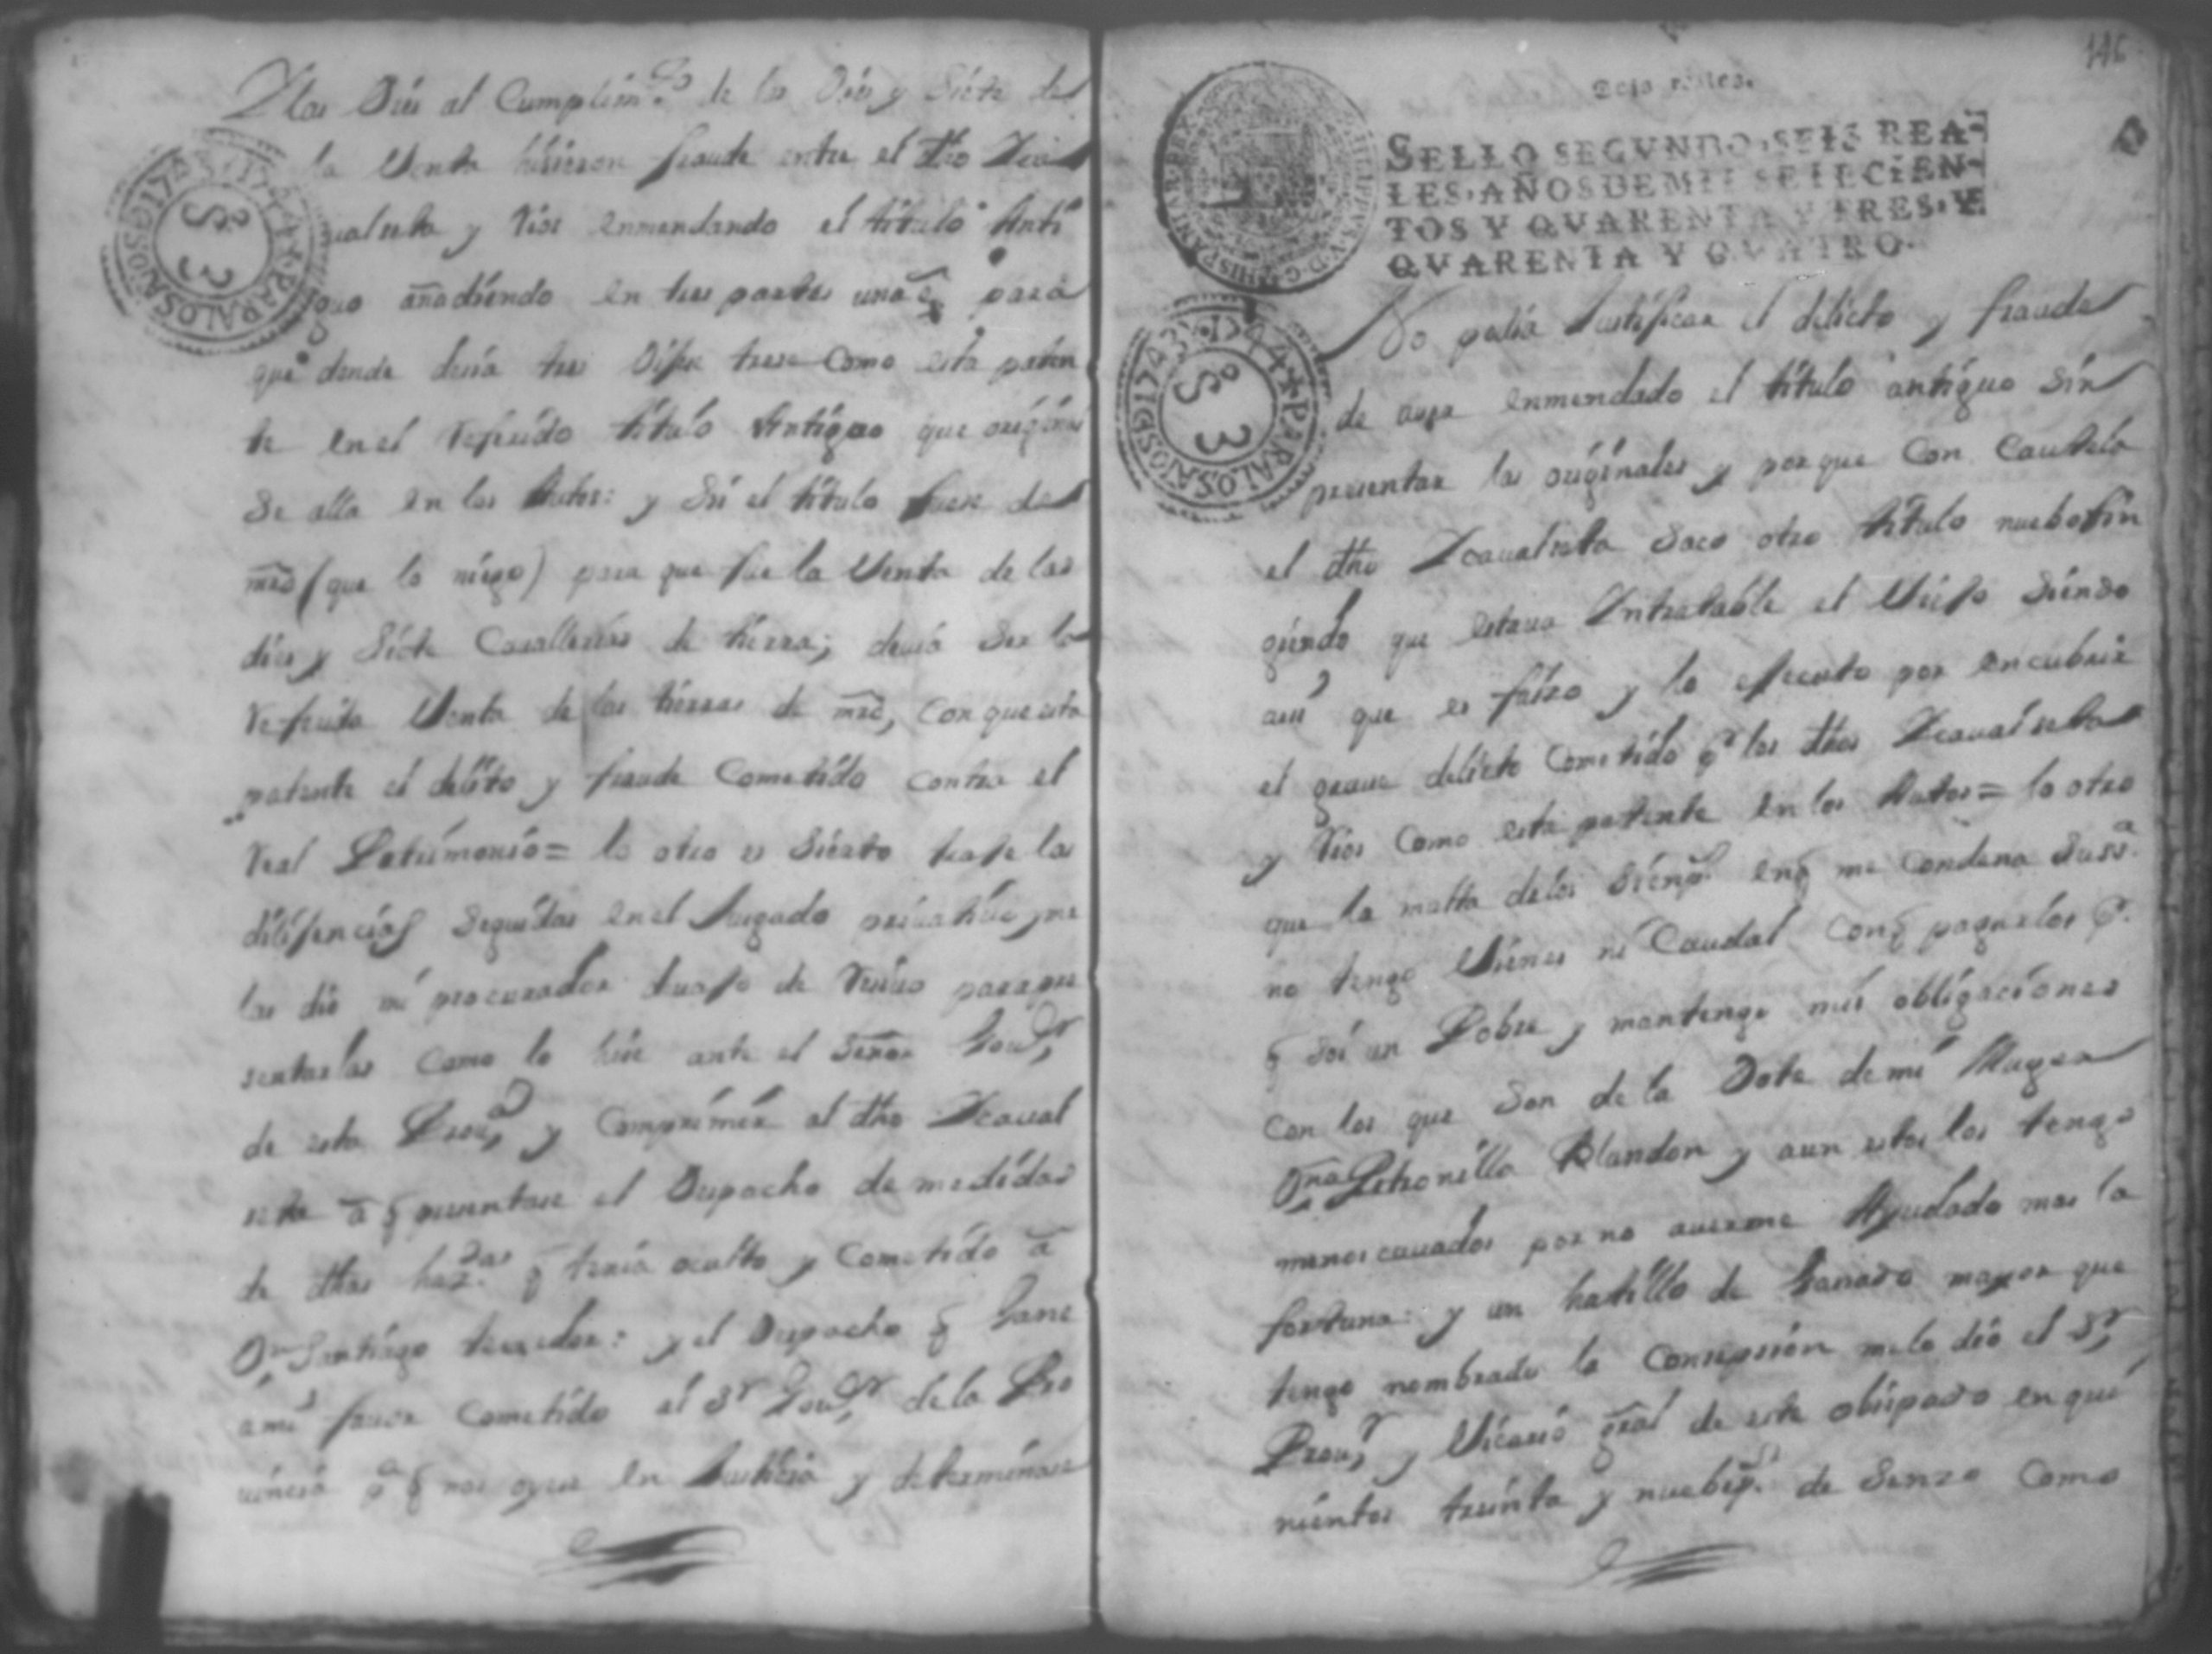 Las Dies al Cumplim.to de las Dies y Siete de
la Venta hisieron fraude entre el dho Ycaual
salseta y Rios enmendando el titulo Anti
guo añadiendo en tres partes una q̃ para
que donde desia tres Dijese trese Como esta paten
te en el referido titulo Antiguo que original
Se alla en los Autos: y Si el titulo fuese de
mrd (que lo niego) para que fue la Venta de las
dies y Siete Cauallerias de tierra; deuia Ser la
referida Venta de las tierras de mrd, con que esta
patente el delito y fraude Cometido contra el
Real Patrimonio = lo otro es Sierto traje las
dilijencias Seguidas en el Jusgado priuatiuo, me
las dio mi procurador para pre
sentarlas Como lo hise ante el Señor Gou.or
de esta Prou.a y Comprimir al dho Ycaual
seta a q̃ presentase el Despacho de medidas
de dhas haz.das q̃ traia oculto y Cometido a
D.n Santiago : y el Despacho q̃ Gane
a mi fauor Cometido al S.r Gou.or de la Pro
uincia p.a q̃ nos oyese en Justicia y determinase
116
Seis reales.
SELLO SEGVNDO, SEIS REA-
LES, AÑOS DE MIL SETECIEN-
TOS Y QVARENTA Y TRES, Y
QVARENTA Y QVATRO.
No podia Justificar el delicto y fraude
de auer enmendado el titulo antiguo Sin
presentar los originales y porque Con Cautela
el dho Ycaualseta Saco otro titulo nuebo fin
giendo que estaua Yntratable el Viejo Siendo
assi que es falso y lo ejecuto por encubrir
el graue delicto Cometido p.r los dhos Ycaualseta
y Rios Como esta patente en los Autos = lo otro
que la multa de los Sien p.s en q̃ me Condena Su s.a
no tengo Vienes ni Caudal con q̃ pagarlos p.r
q̃ Soi un Pobre y mantengo mis obligaciones
Con los que Son de la Dote de mi Muger
D.na Petronilla Blandon y aun estos los tengo
menoscauados por no auerme Ayudado mas la
fortuna: y un hatillo de Ganado mayor que
tengo nombrado la Consepsion me lo dio el S.r
Prou.r y Vicario gral de este obispado en qui
nientos treinta y nuebe p.s de Senzo Como